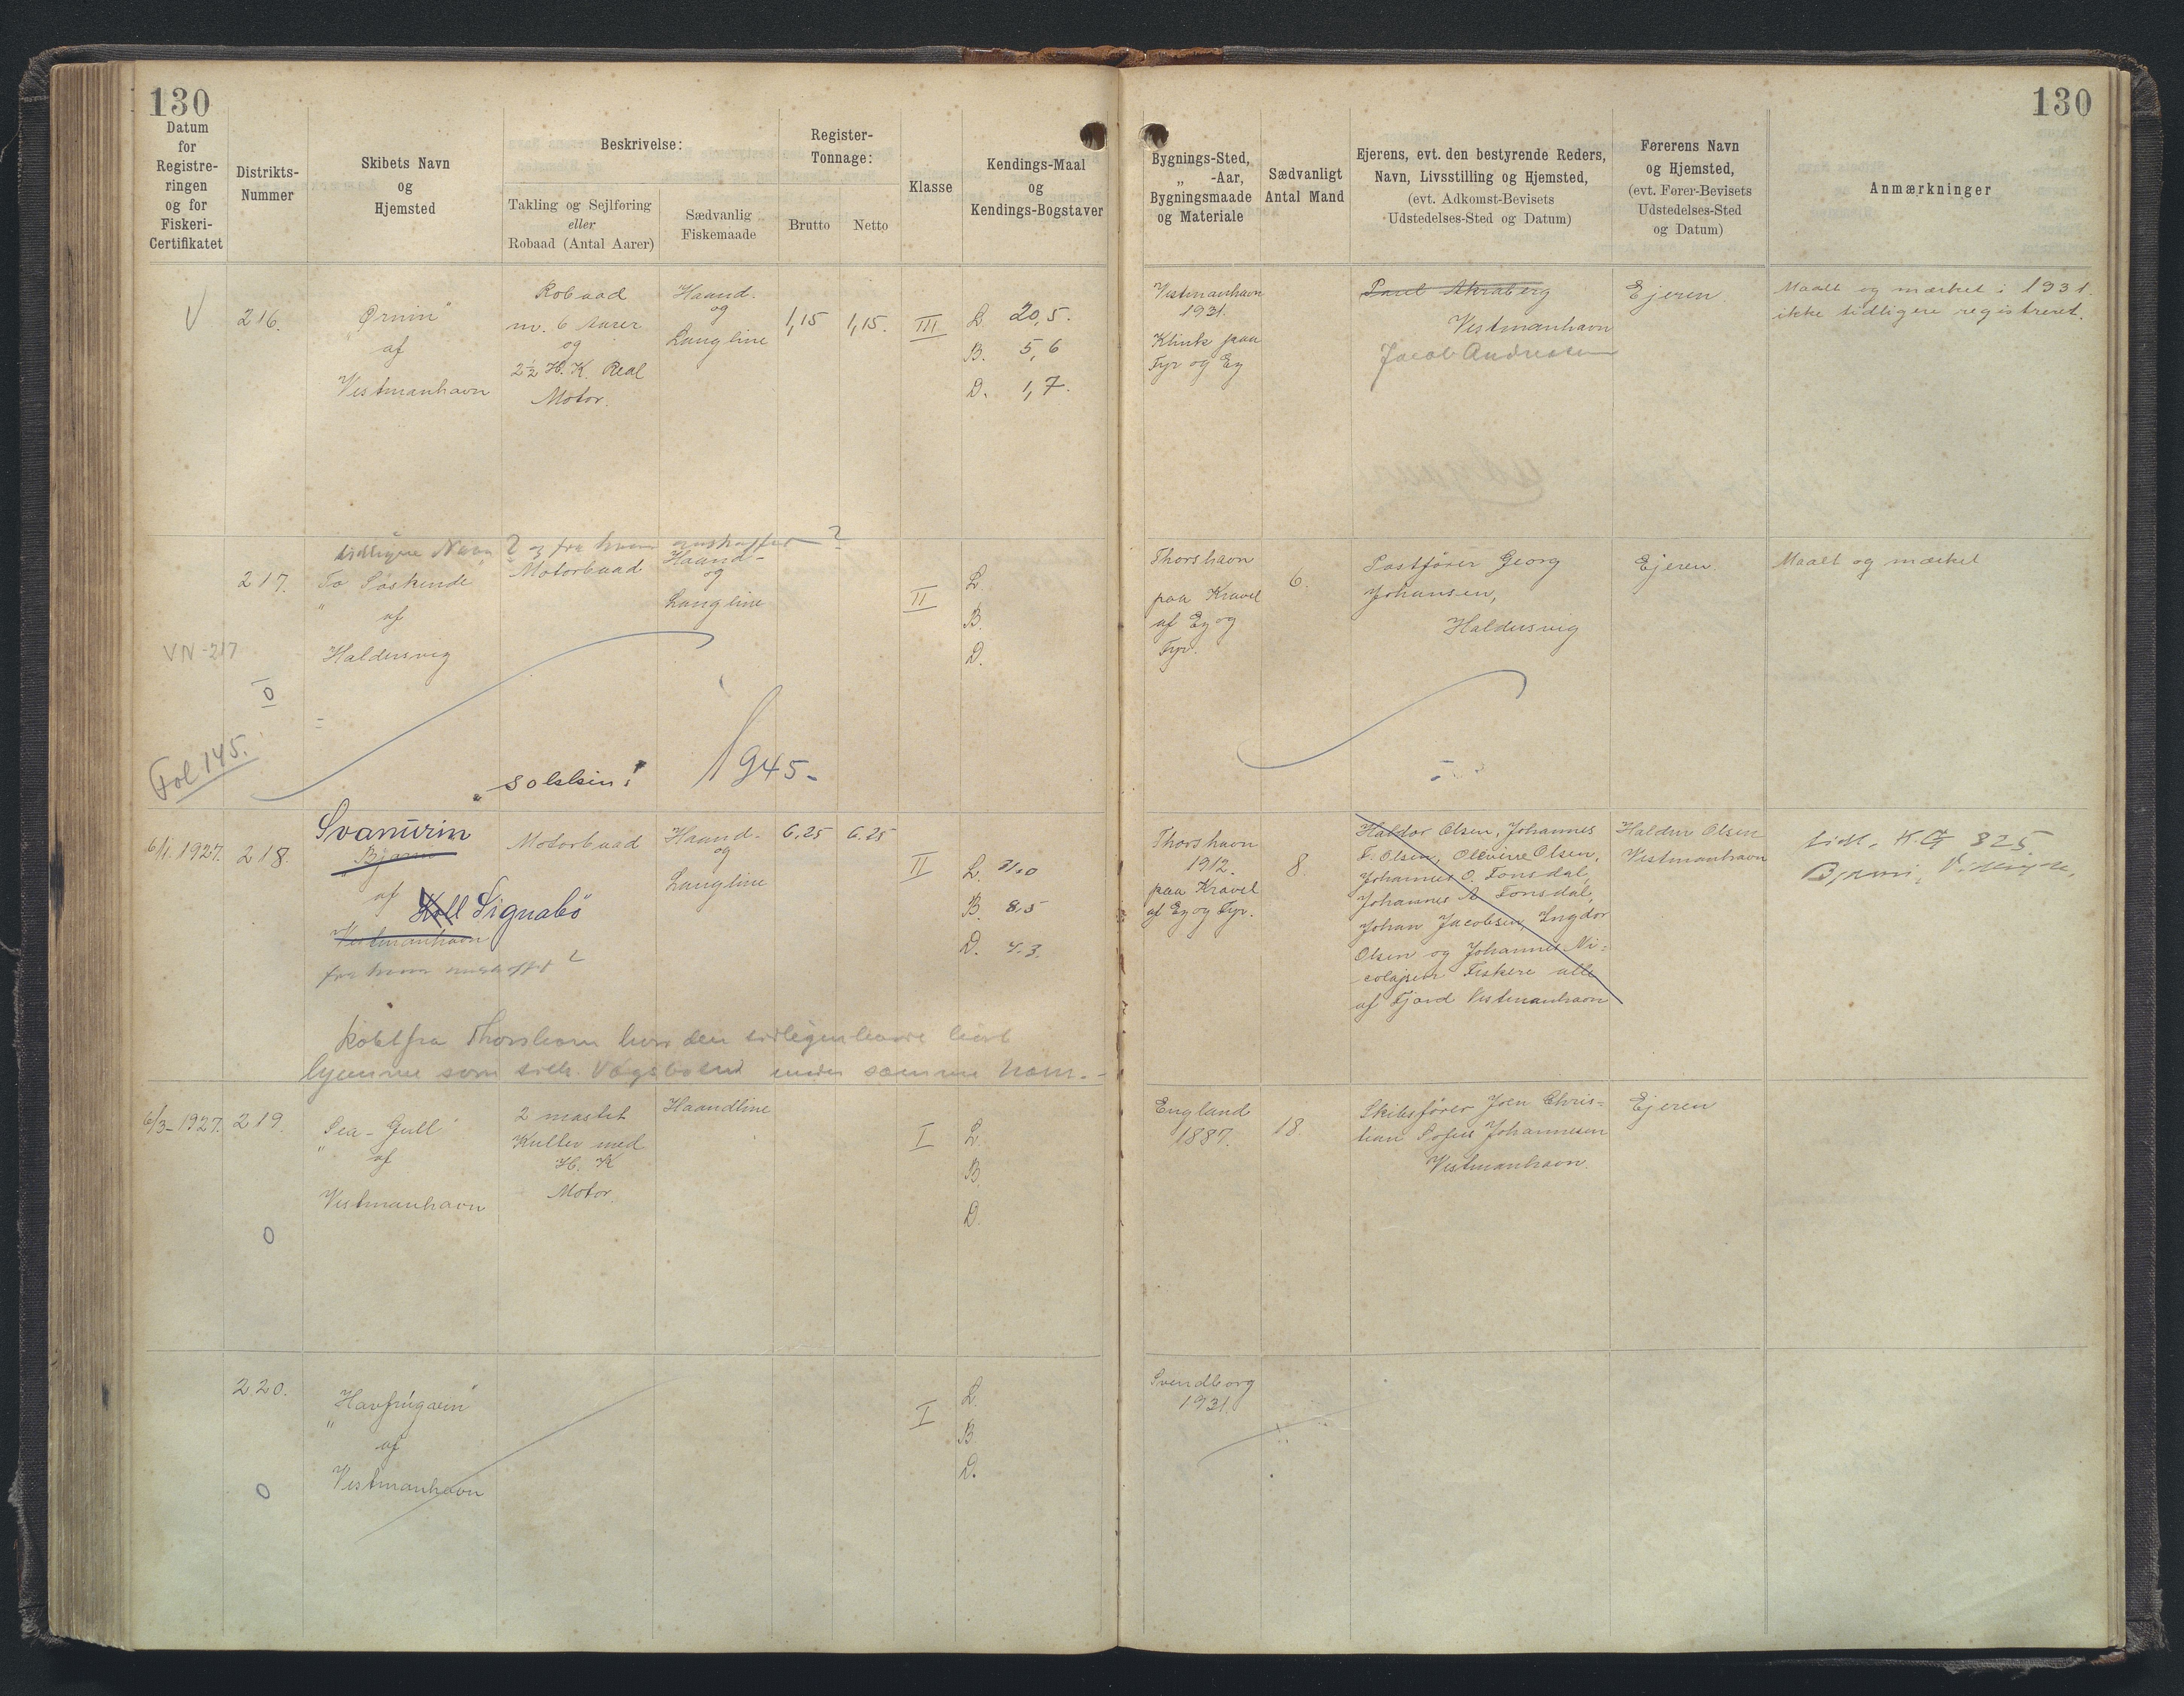 130
130
Datum
for
Registre-
ringen
og for
Fiskeri-
Certifikatet
Distrikts-
Nummer
Skibets Navn
og
Hjemsted
Beskrivelse:
Takling og Sejlføring
eller
Robaad (Antal Aarer)
Sædvanlig
Fiskemaade
Register-
Tonnage:
Brutto
Netto
Klasse
Kendings-Maal
og
Kendings-Bogstaver
Bygnings-Sted,
„ -Aar,
Bygningsmaade
og Materiale
Sædvanligt
Antal Mand
Ejerens, evt. den bestyrende Reders,
Navn, Livsstilling og Hjemsted,
(evt. Adkomst-Bevisets
Udstedelses-Sted og Datum)
Førerens Navn
og Hjemsted,
(evt. Fører-Bevisets
Udstedelses-Sted
og Datum)
Anmærkninger
V
216.
Ørnin"
af
Vestmanhavn
Robaad
m. 6 Aarer
og
2½ H. K. Real
Motor.
Haand-
og
Langline
1,15
1,15.
III
L 20,5.
B. 5,6
D. 1,7.
Vestmanhavn
1931.
Klink paa
Fyr og Eg
Paul Akraberg
Vestmanhavn
Jacob Andreasen
Ejeren
Maalt og mærket i 1931.
ikke tidligere registreret.
tidligere Navn ? og fra hvem anskaffet ?
217.
To Søskende
" af
Haldersvig
Motorbaad
Haand-
og
Langline
II
L.
B.
D.
VN-217
0
Fol 145.
1945-
Thorshavn
paa Kravel
af Eg og
Fyr.
6.
Postfører Georg
Johansen,
Haldersvig
Ejeren.
Maalt og mærket
"Solskin"
6/1. 1927.
218.
Svanurin
Bjarni
af Koll Signabö
Vestmanhavn
fra hvem anskaffet ?
Motorbaad
Haand-
og
Langline
6.25
6.25
II
L. 31,0
B. 8,5
D. 4.3.
Købt fra Thorshavn hvor den tidligere havde hørt
hjemme som tidl. Vagsbaad under samme Navn.-
Thorshavn
1912.
paa Kravel
af Eg og Fyr.
8.
Haldor Olsen, Johannes
F. Olsen, Olevine Olsen,
Johannes O. Tonsdal,
Johannes A Tonsdal,
Johan Jacobsen, Ingdor
Olsen og Johannes Ni-
colajsen Fiskere alle
af Fjord Vestmanhavn
Haldur Olsen
Vestmanhavn
tidl. K.G 825
6/3-1927.
219.
Sea-Gull"
" af
Vestmanhavn
0
2 mastet
Kutter med
H. K
Motor.
Haandline
I
L.
B.
D.
England
1887.
18.
Skibsfører Joen Chris-
tian Pofus Johannesen
Vestmanhavn.
Ejeren
220.
Havfrúgvin"
" af
Vestmanhavn
0
I
L.
B.
D.
Svendborg
1931.